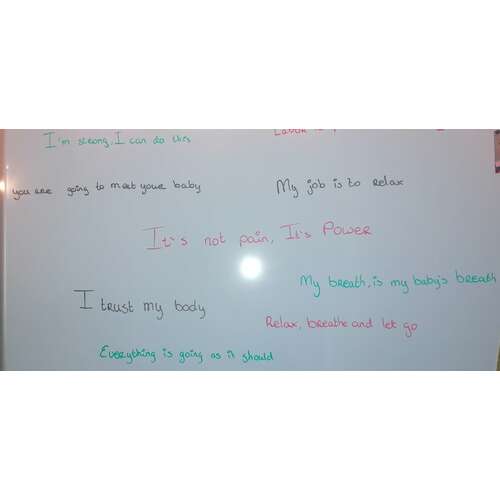 I'm strong, I can do this
Labor
you are going to meet youre baby
My job is to relax
It's not pain, It's Power
My breath, is my baby's breath
I trust my body
Relax, breathe and let go
Everything is going as it should